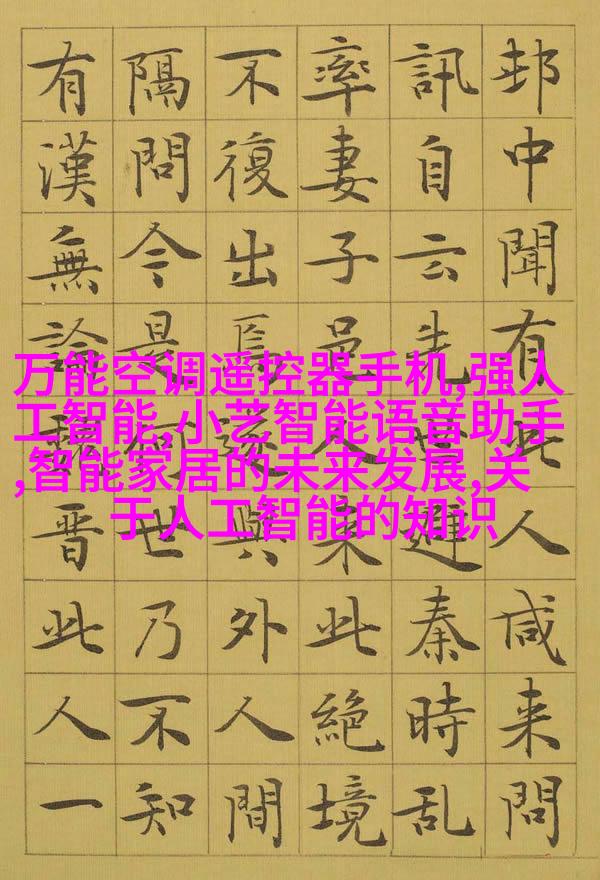 万能空调遥控器手机,强人
工智能,小艺智能语音助手
,智能家居的未来发展,关
于人工智能的知识
邨中聞有此人咸来問
訊自云先世避秦時乱
率妻子邑人来此絶境
不復出焉遂與外人間
隔問今是何世乃不知
有漢無論魏晋此人一